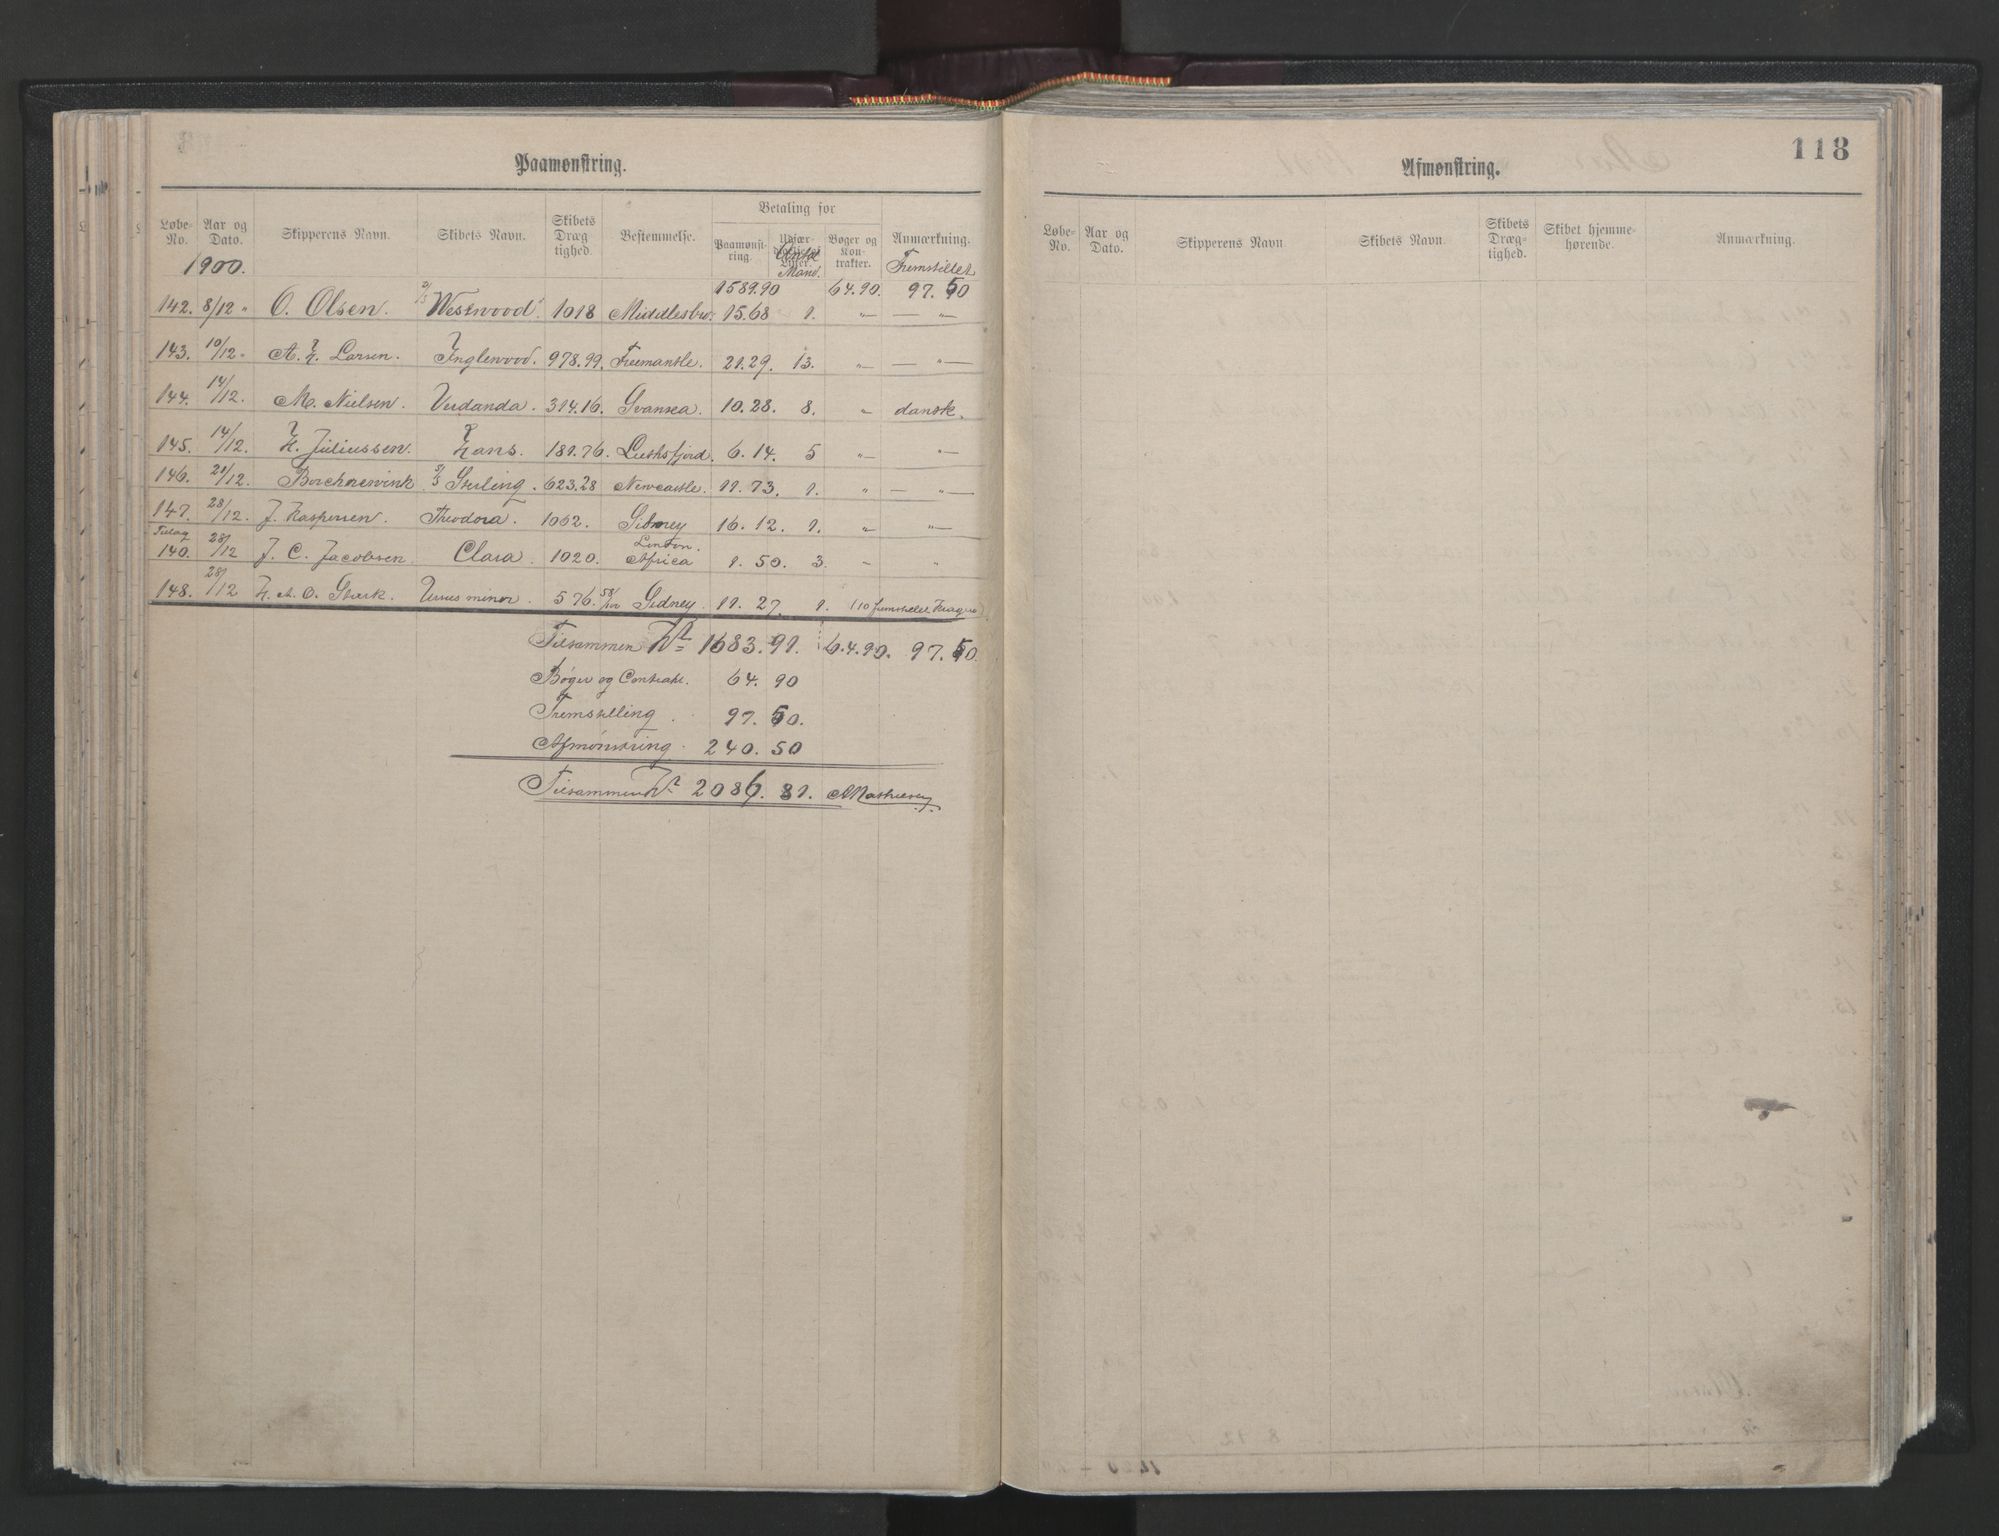 Paamønstring.
Løbe-No. Aar og Dato. Skipperens Navn. Skibets Navn. Skibets Dræg tighed. Bestemmelse. Betaling for Paamønst-ring. Antal Mand. Bøger og Kon-trakter. Anmærkning.
1900. Fremstillet
1589.90 64.90. 97.50
142. 8/12 " O. Olsen. Westwood. 1018 Middlesbro. 15.68 1. " — " —
143. 10/12. A. H. Larsen. Inglewood. 978.99. Freemantle. 21.29. 13. " — " —
144. 14/12. M. Nielsen. Verdanda. 314.16. Svansea. 10.28. 8. " dansk.
145. 14/12. H. Juliussen. Hans. 181.76. 6.14. 5 " "
146. 21/12. Borchrevink S/S Sterling. 623.28 Newcastle. 11.73. 1. " — " —
147. 28/12. J. Kaspersen. Theodora. 1062. Sidney 16.12. 1. " "
Tillæg London.
140. 28/12 J. C. Jacobsen Clara. 1020. Africa 1.50. 3. " "
148. 28/12 H. A. O. Stærk. Ursus minor. 576.58/100 Sidney. 11.27. 1. (10 fremstillet
Tilsammen Kr 1683.91. 64.90. 97.50.
Bøger og Contrakt. 64.90
Fremstilling. 97.50.
Afmønstring. 240.50
Tilsammen Kr 2086.81. AMathiesen
118
Afmønstring.
Løbe-No. Aar og Dato. Skipperens Navn. Skibets Navn. Skibets Dræg-tighed. Skibet hjemme-hørende. Anmærkning.